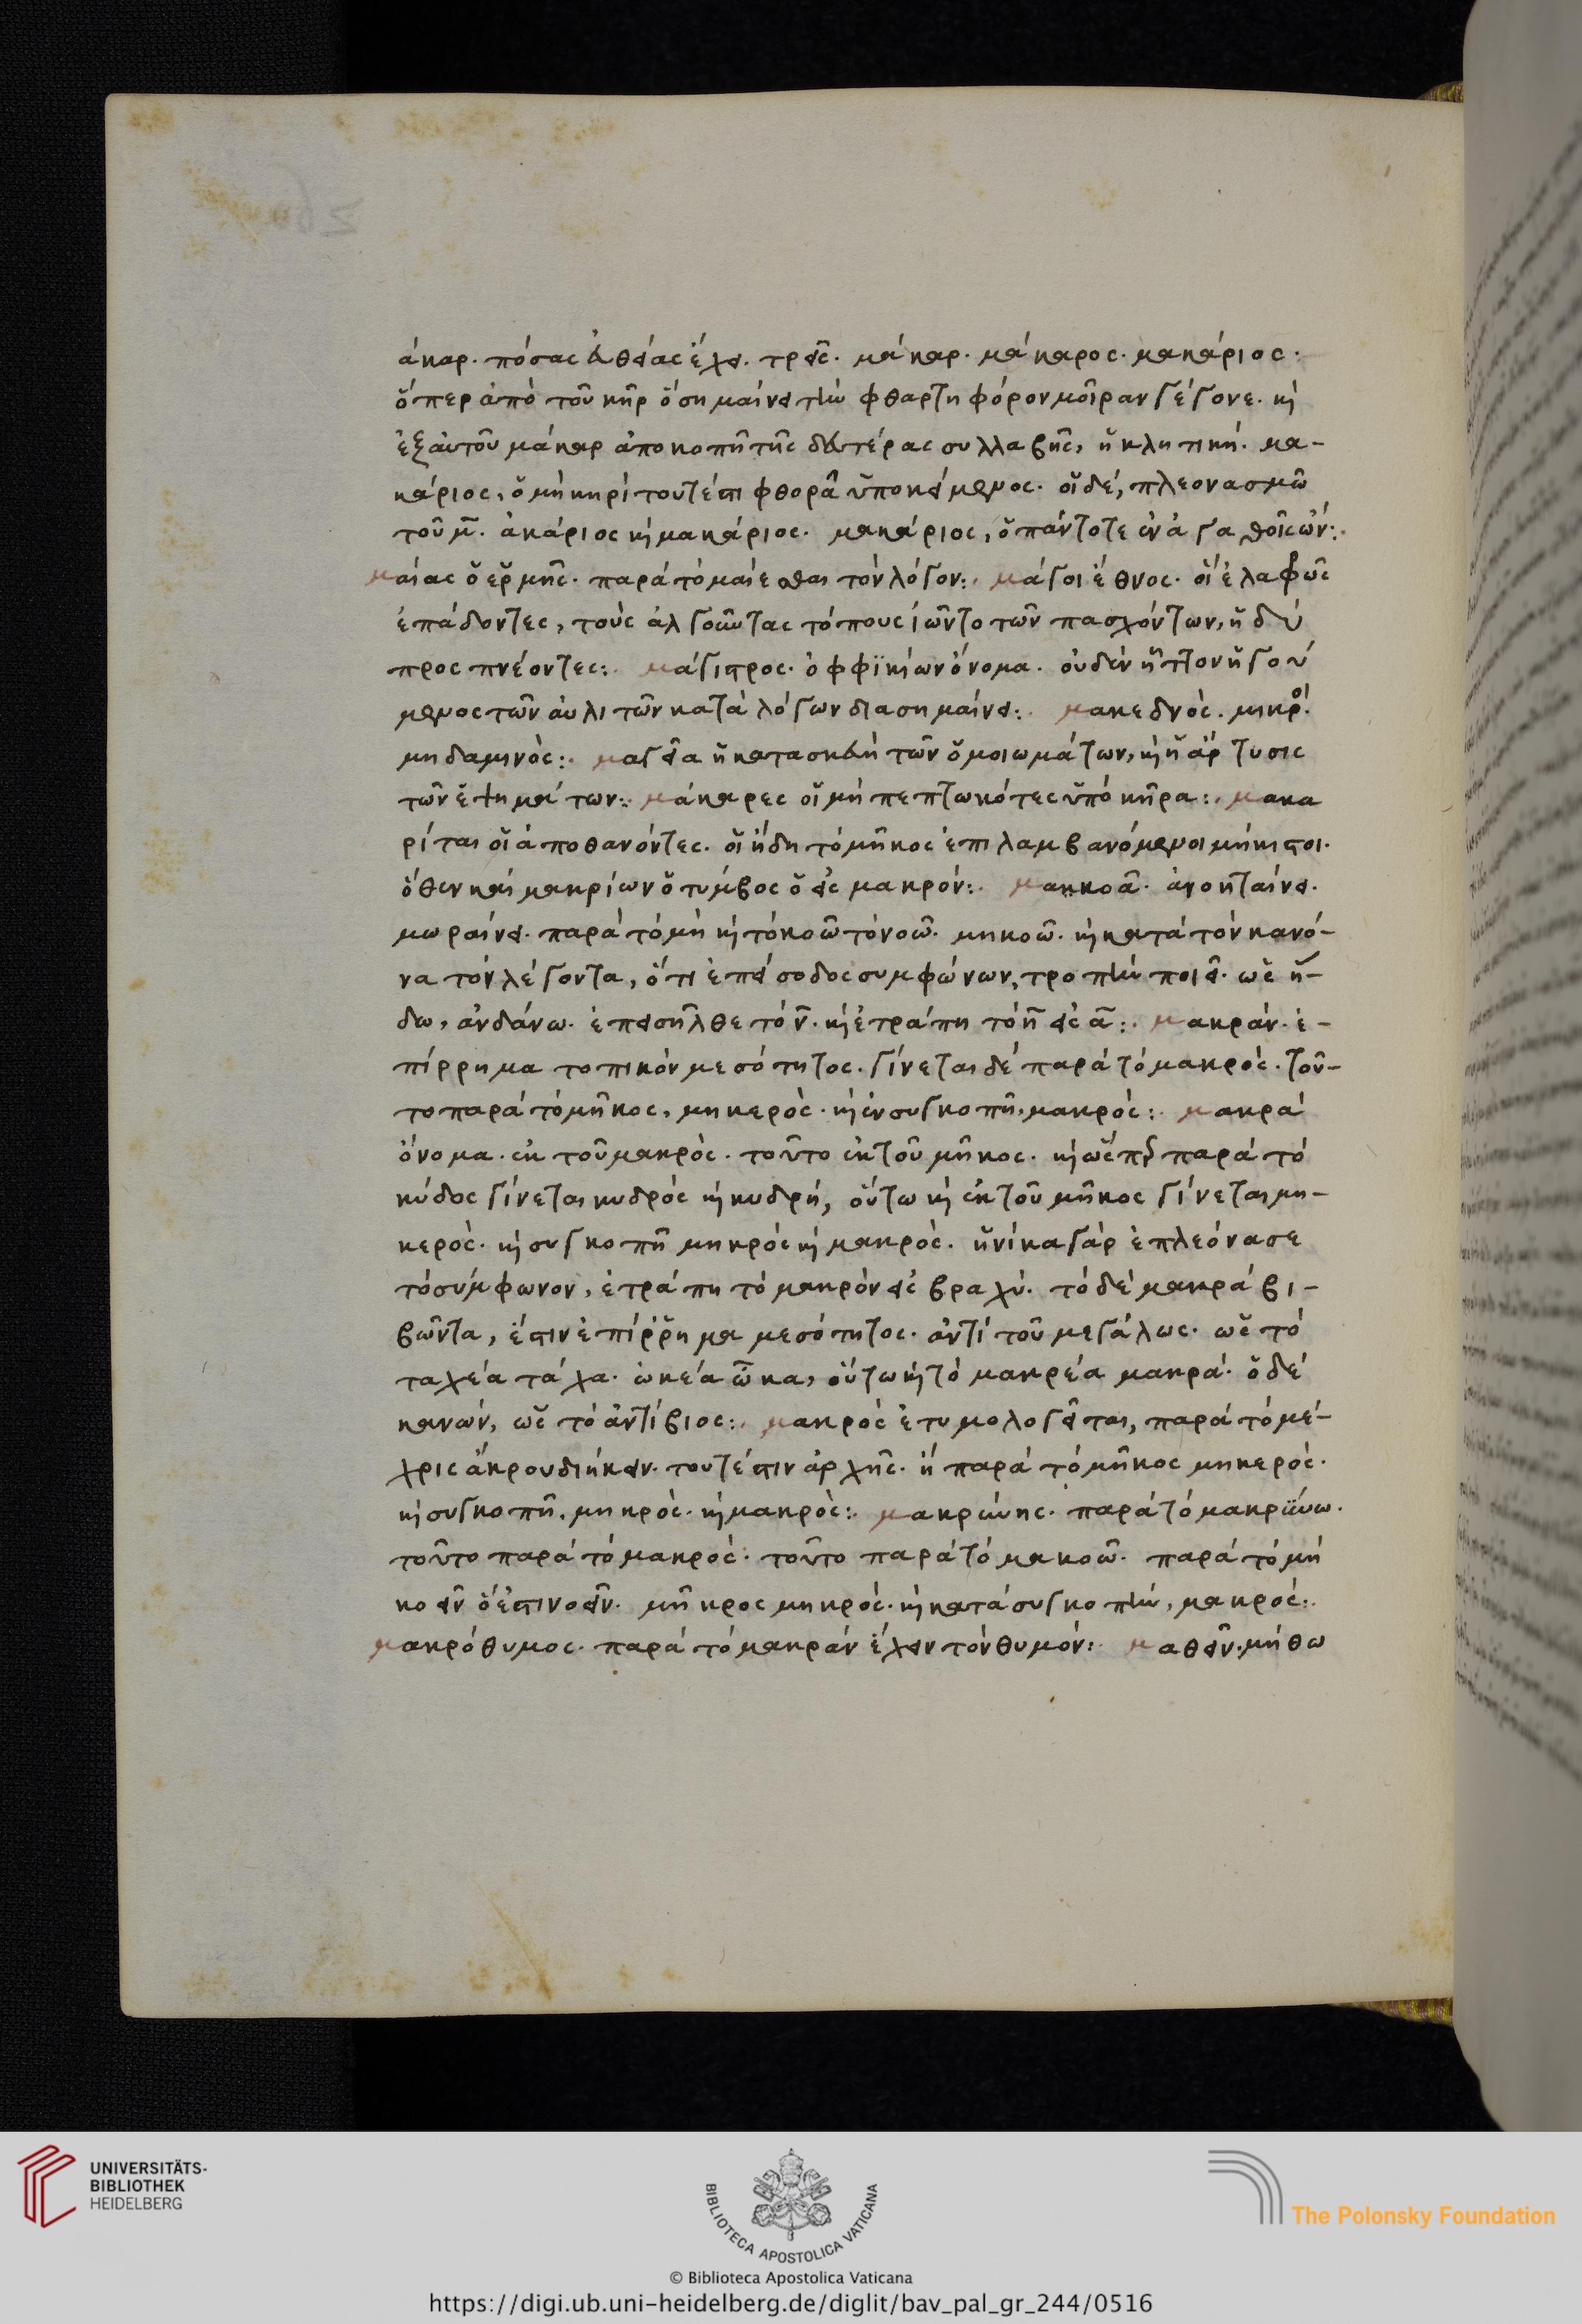 άκαρ. πόσας εὐθείας ἔχει. τρεῖς. μάκαρ. μάκαρος. μακάριος.
ὅπερ ἀπὸ τοῦ κὴρ ὃ σημαίνει τὴν φθαρτηφόρον μοῖραν γέγονε. κὶ
ἐξ αὐτοῦ μάκαρ ἀποκοπῆ τῆς δευτέρας συλλαβῆς, ἡ κλητική. μα-
κάριος, ὁ μὴ κηρὶ τουτέστι φθορᾶ ὑποκείμενος. οἱ δὲ, πλεονασμῶ
τοῦ μ̅. ἀκάριος κὶ μακάριος. μακάριος, ὁ πάντοτε ἐν ἀγαθοῖς ὤν:.
μαίας ὁ ἑρμῆς. παρὰ τὸ μαίεσθαι τὸν λόγον:. μάγοι ἔθνος. οἱ ἐλαφρῶς
ἐπάδοντες, τοὺς ἀλγοῦντας τόπους ἰῶντο τῶν πασχόντων, ἡδὺ
προσπνέοντες:. μάγιστρος. ὀφφϊκίων ὄνομα. οὐδὲν ἧττον ἡγού
μενος τῶν αὐλιτῶν καταλόγων διασημαίνει:. μακεδνὸς. μικρὸ.
μηδαμινὸς:. μαγεῖα ἡ κατασκευὴ τῶν ὁμοιωμάτων, κὶ ἡ ἄρτυσις
τῶν ἑψημάτων:. μάκαρες οἱ μὴ πεπτωκότες ὑπὸ κῆρα:. μακα
ρίται οἱ ἀποθανόντες. οἱ ἤδη τὸ μῆκος ἐπιλαμβανόμενοι μήκιστοι.
ὅθεν καὶ μακρίων ὁ τύμβος ὁ εἰς μακρόν:. μακκοᾶ. ἀνοηταίνει.
μωραίνει. παρὰ τὸ μὴ κὶ τὸ κοῶ τὸ νοῶ. μηκοῶ. κὶ κατὰ τὸν κανό-
να τὸν λέγοντα, ὅτι ἐπείσοδος συμφώνων, τροπὴν ποιεῖ. ὡς ἥ-
δω, ἀνδάνω. ἐπεισῆλθε τὸ ν̅. κὶ ἐτράπη τὸ η̅ εἰς α̅:. μακράν. ἐ-
πίρρημα τοπικὸν μεσότητος. γίνεται δὲ παρὰ τὸ μακρός. τοῦ-
το παρὰ τὸ μῆκος, μηκερὸς. κὶ ἐν συγκοπῆ, μακρὸς:. μακρὰ
ὄνομα. ἐκ τοῦ μακρὸς. τοῦτο ἐκ τοῦ μῆκος. κὶ ὥσπερ παρὰ τὸ
κύδος γίνεται κυδρὸς κὶ κυδρή, οὕτω κὶ ἐκ τοῦ μῆκος γίνεται μη-
κερὸς. κὶ συγκοπῆ μηκρὸς κὶ μακρὸς. ἡνίκα γὰρ ἐπλεόνασε
τὸ σύμφωνον, ἐτράπη τὸ μακρὸν εἰς βραχύ. τὸ δὲ μακρὰ βι-
βῶντα, ἔστιν ἐπίρρημα μεσότητος. ἀντὶ τοῦ μεγάλως. ὡς τὸ
ταχέα τάχα. ὠκέα ὦκα, οὕτω κὶ τὸ μακρέα μακρά. ὁ δὲ
κανών, ὡς τὸ ἀντίβιος:. μακρὸς ἐτυμολογεῖται, παρὰ τὸ μέ-
χρις ἄκρου διήκειν. τουτέστιν ἀρχῆς. ἢ παρὰ τὸ μῆκος μηκερὸς.
κὶ συγκοπῆ. μηκρὸς. κὶ μακρὸς:. μακρύνης. παρὰ τὸ μακρύνω.
τοῦτο παρὰ τὸ μακρός. τοῦτο παρὰ τὸ μακοῶ. παρὰ τὸ μὴ
κοεῖν ὅ ἐστι νοεῖν. μῆκρος μηκρὸς. κὶ κατὰ συγκοπὴν, μακρός:.
μακρόθυμος. παρὰ τὸ μακρὰν ἔχειν τὸν θυμόν:. μαθεῖν. μήθω
UNIVERSITÄTS-
BIBLIOTHEK
HEIDELBERG
BIBLIOTECA APOSTOLICA VATICANA
The Polonsky Foundation
© Biblioteca Apostolica Vaticana
https://digi.ub.uni-heidelberg.de/diglit/bav_pal_gr_244/0516